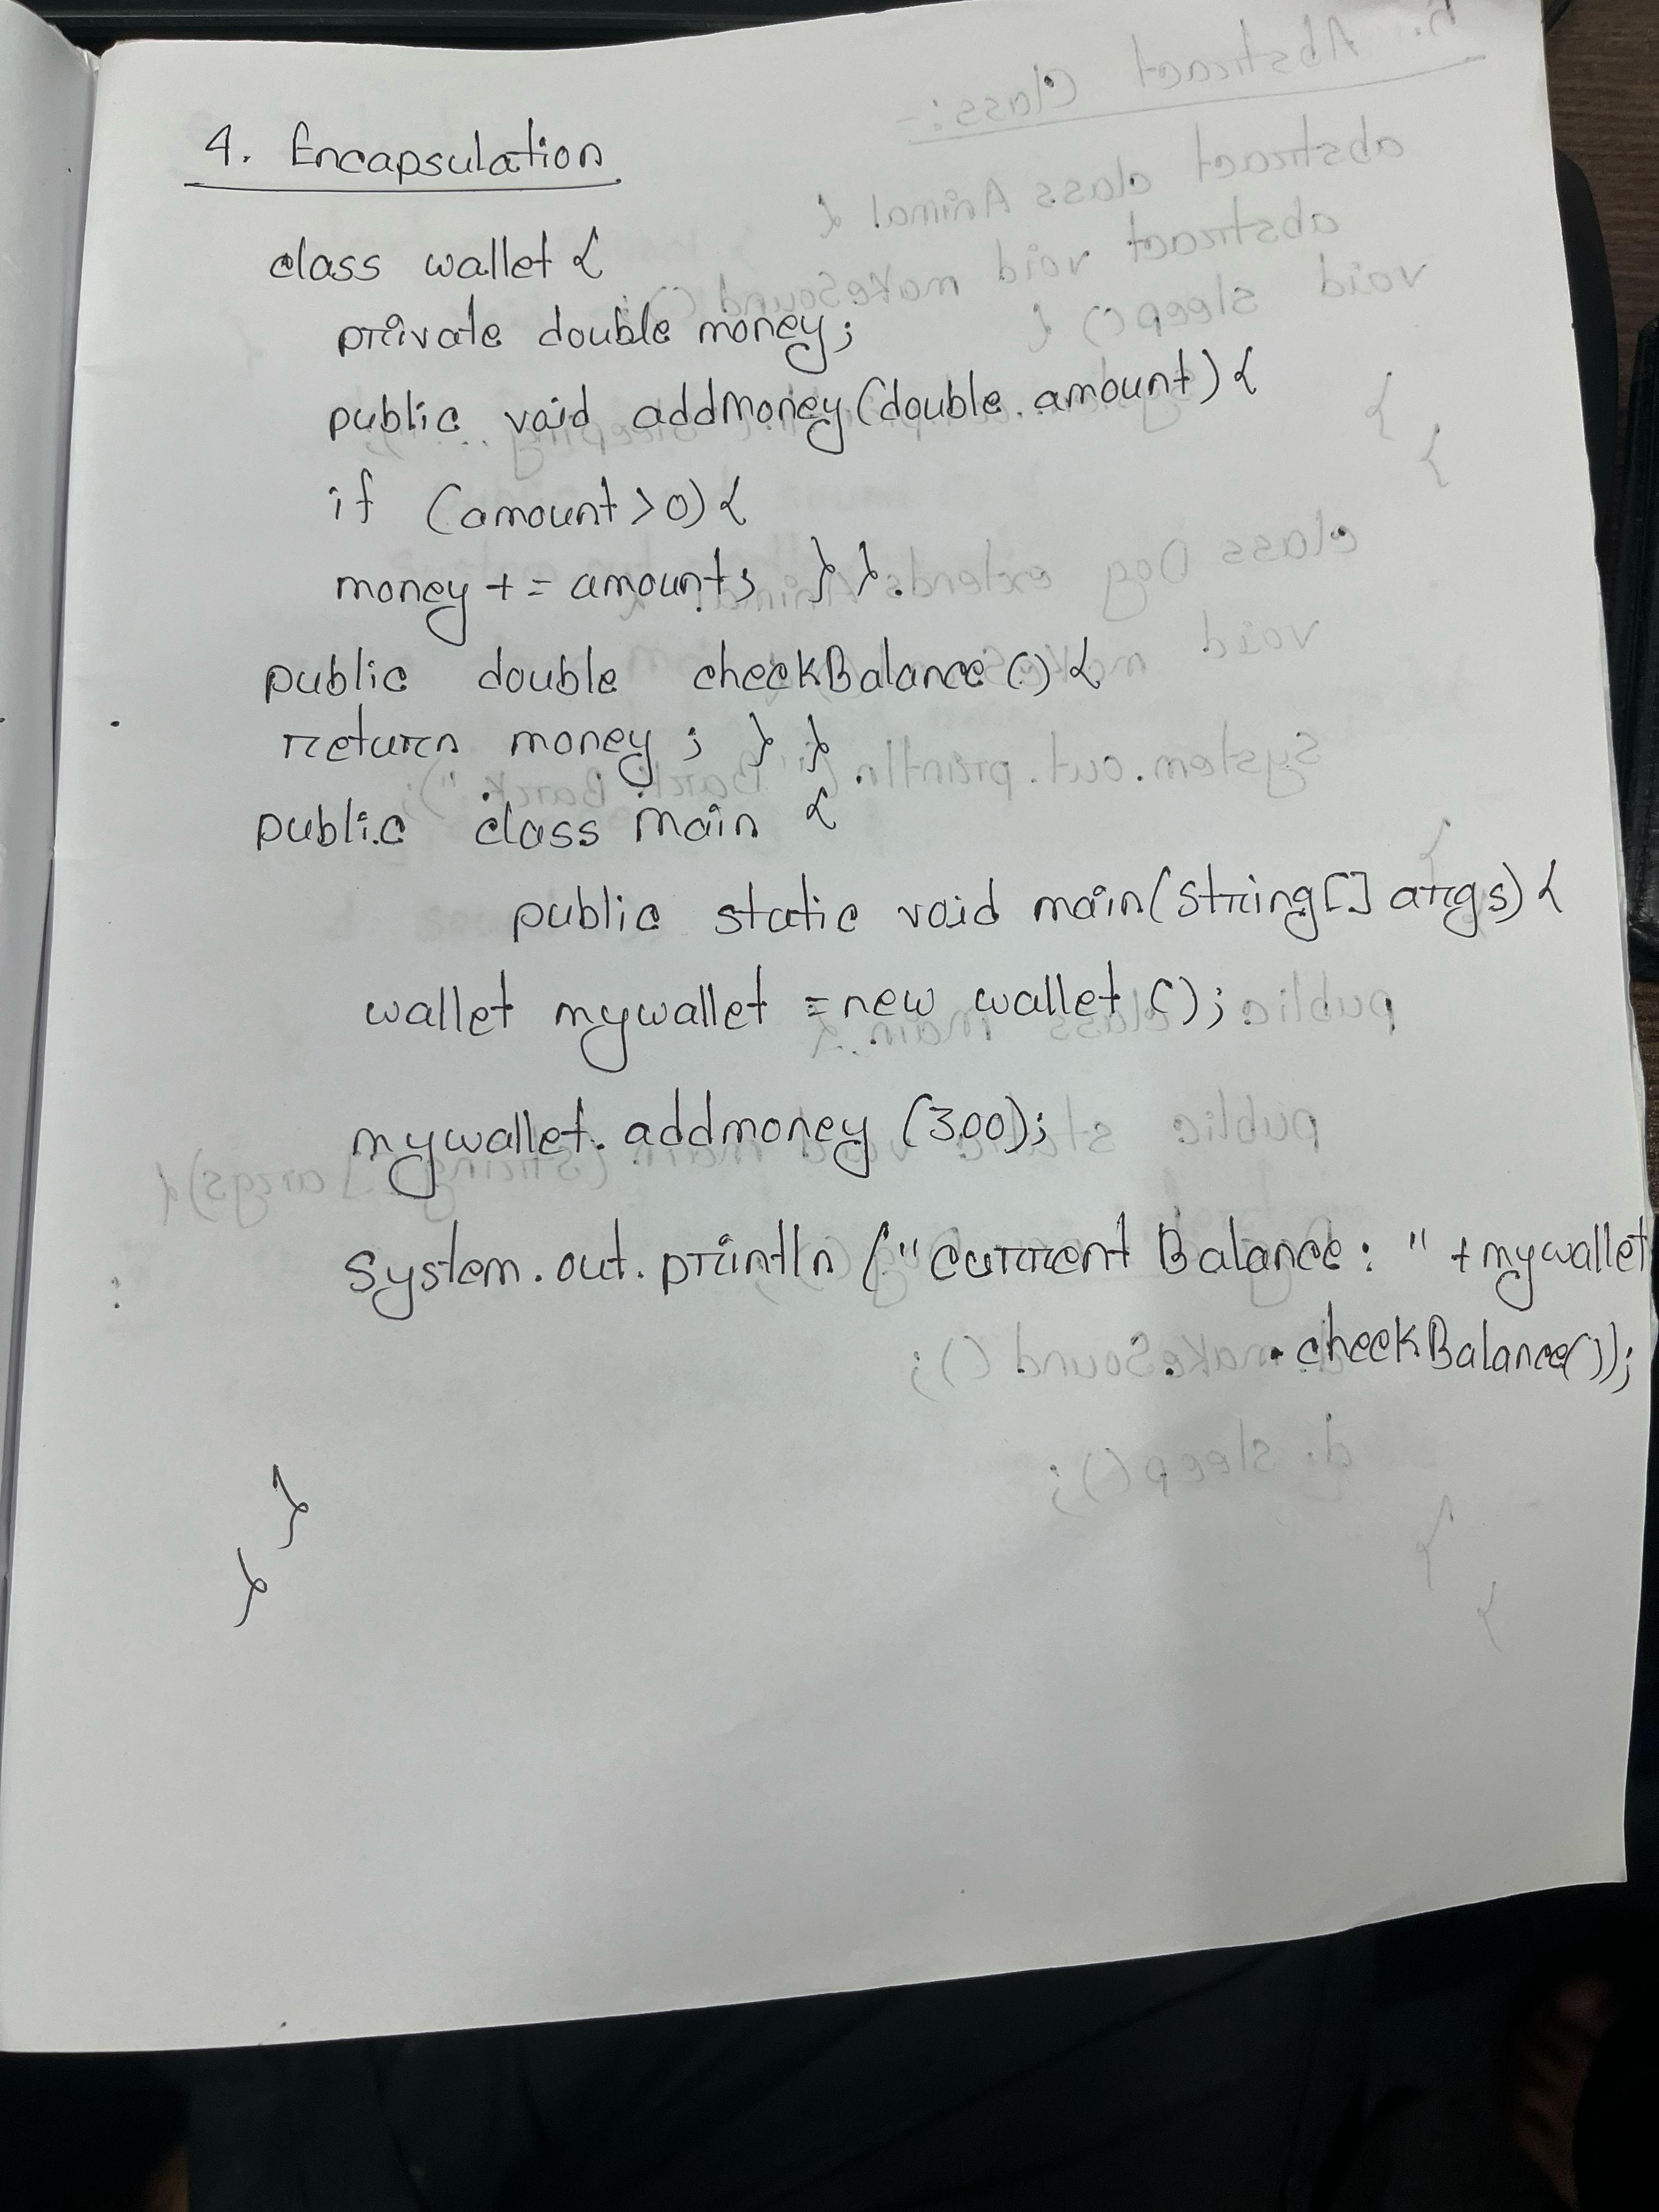 4. Encapsulation
class wallet {
private double money;
public void addmoney(double amount) {
if (amount > 0) {
money += amount; } }
public double checkBalance () {
return money ; } }
public class main {
public static void main(string[] args) {
wallet mywallet = new wallet ();
mywallet. addmoney (300);
system.out.println ("current Balance: " + mywallet
. checkBalance());
}
}